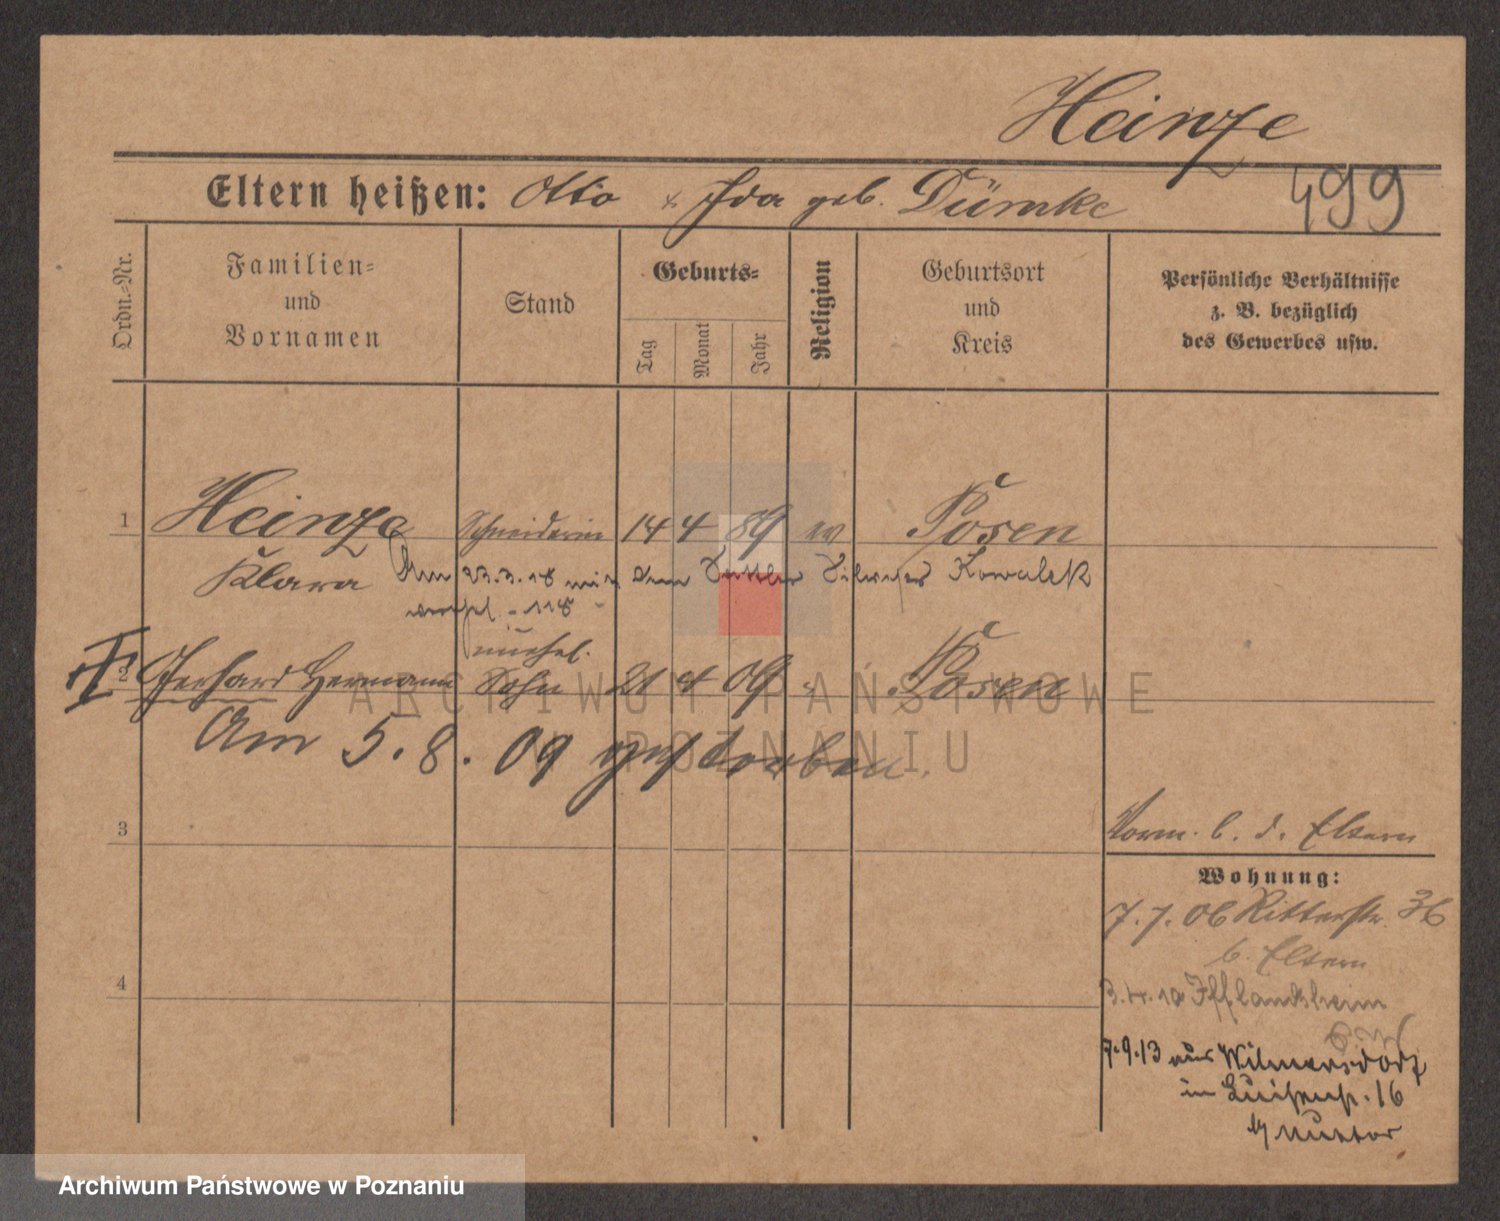 Heinze
499
Eltern heißen: Otto & Ida geb. Dümke
Ordn.-Nr.
Familien-
und
Vornamen
Stand
Geburts-
Tag
Monat
Jahr
Religion
Geburtsort
und
Kreis
Persönliche Verhältnisse
z. B. bezüglich
des Gewerbes usw.
1 Heinze Schneiderin 14 4 89 ev Posen
Klara Am 23.3.18 mit dem Sattler Silvester Kowalek
verehel. - 118 -
unehel.
2 Gerhard Hermann Sohn 21 4 09 Posen
Am 5.8.09 gestorben.
3
Vorm. b. d. Eltern
Wohnung:
7.7.06 Ritterstr. 36
b. Eltern
4
3.4.10 Ifflandsheim
7.9.13 aus Wilmersdorf
in Luisenstr. 16
b/ Mutter
ARCHIWUM PAŃSTWOWE
W POZNANIU
Archiwum Państwowe w Poznaniu